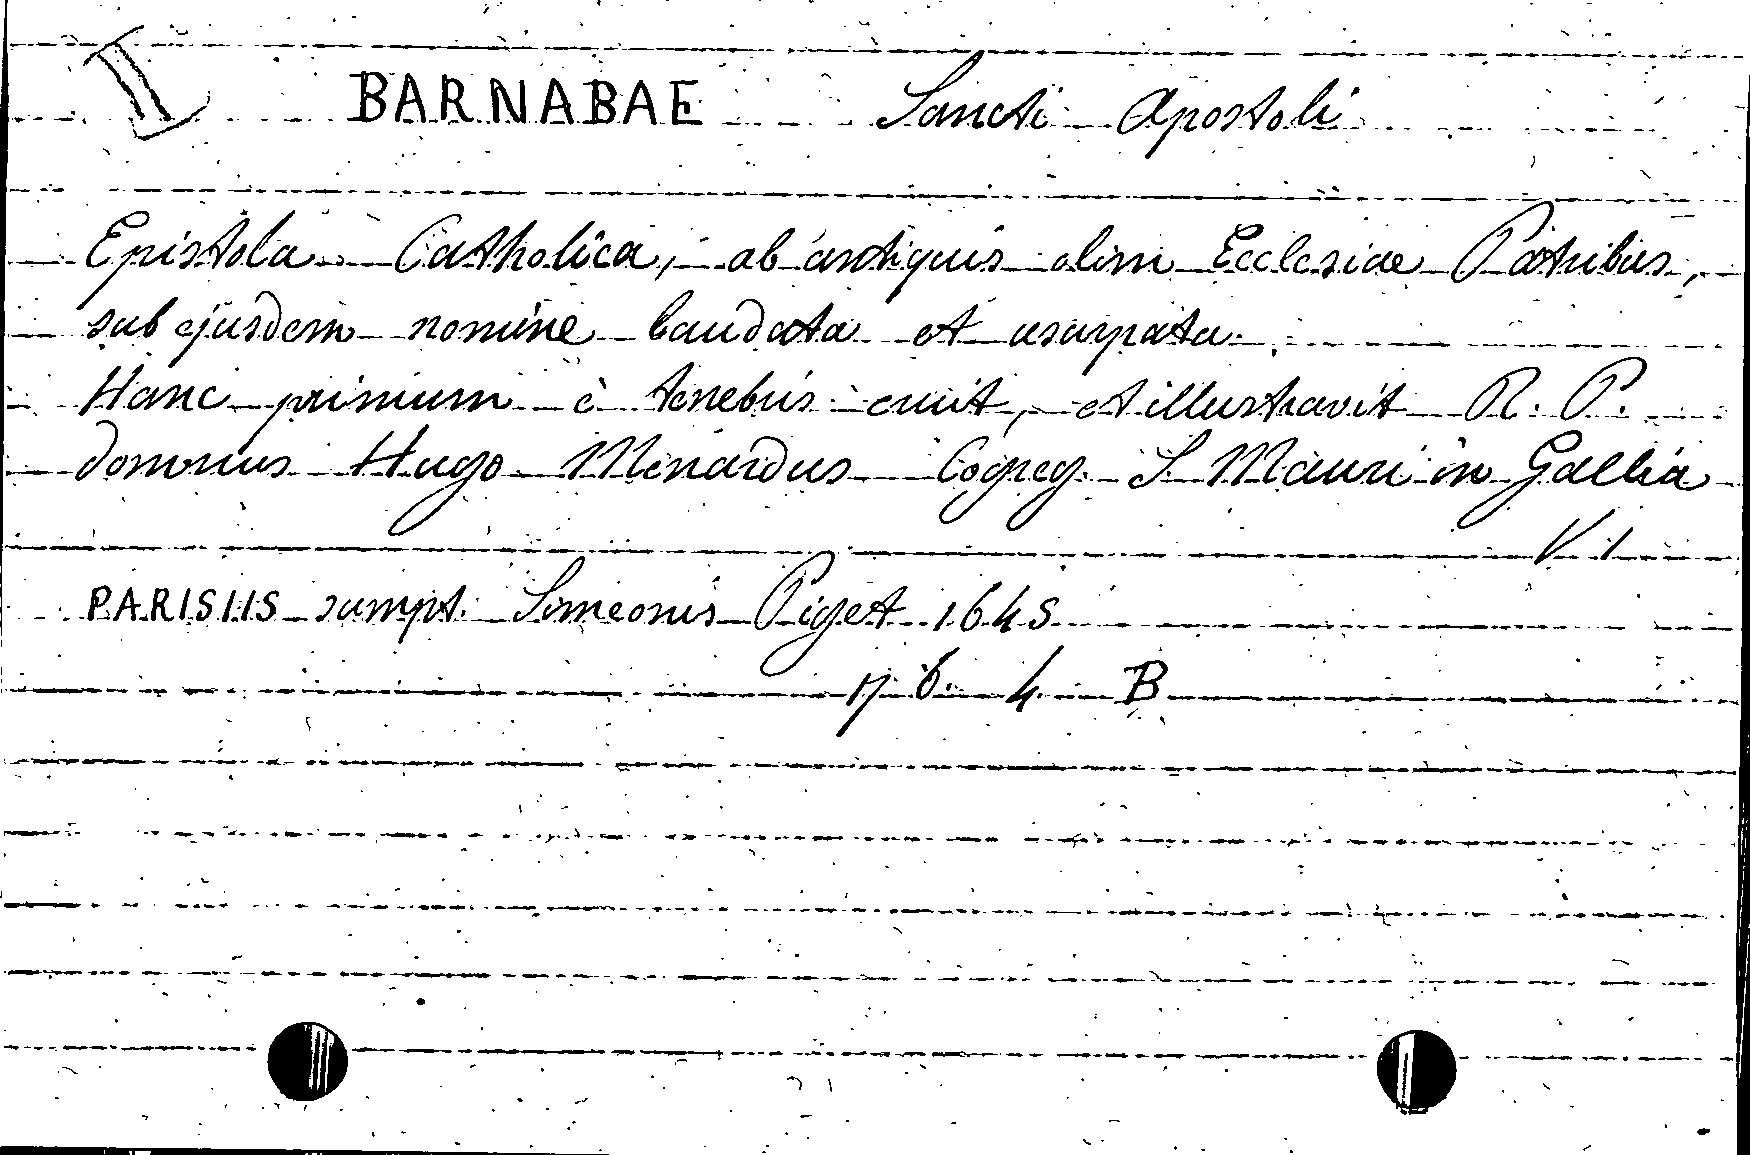 II BARNABAE Sancti Apostoli
Epistola Catholica, ab antiquis olim Ecclesiae Patribus,
sub ejusdem nomine laudata et usurpata.
Hanc primum è tenebris eruit, et illustravit R. P.
domnus Hugo Menardus Cogreg. S Mauri in Gallia
V. 1
PARISIIS sumpt. Simeonis Piget 1645
4 B